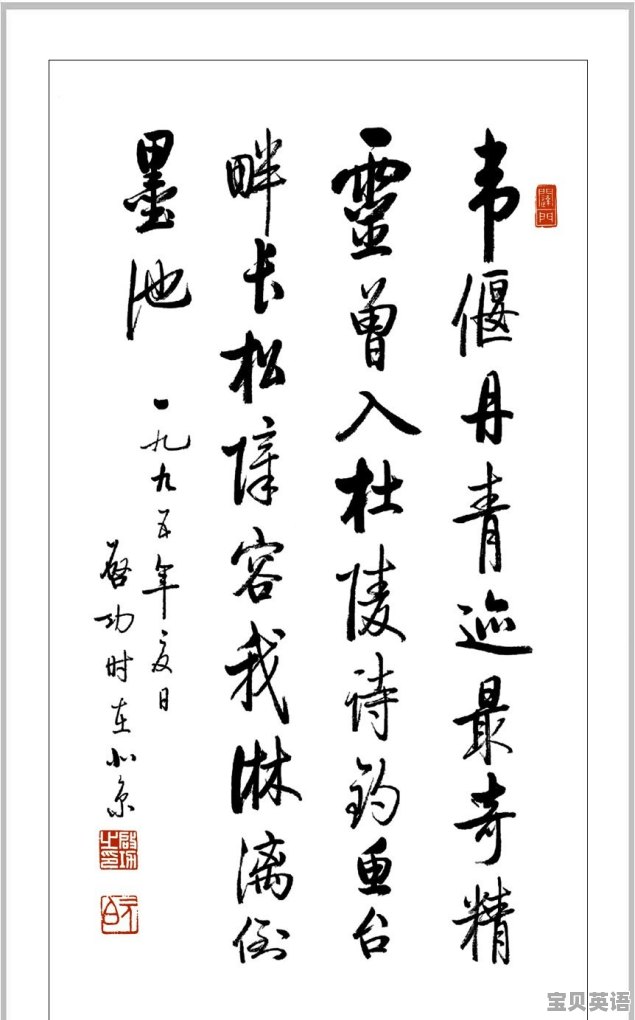 韦偃丹青迹最奇精
靈曾入杜陵诗钓鱼台
畔长松障容我淋漓倒
墨池
一九九五年夏日
啓功时在北京
啟功之印
元白
宝贝英语